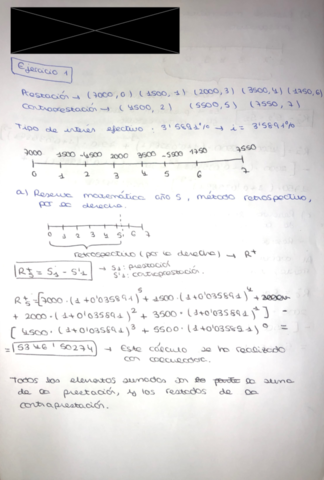 Ejercicio 1
Prestación → (7000, 0) (1500, 1) (2000, 3) (3500, 4) (1750, 6)
Contraprestación → (4500, 2) (5500, 5) (7550, 7)
Tipo de interes efectivo: 3'5891% → i = 3'5891%
7000 1500 -4500 2000 3500 -5500 1750 7550
0 1 2 3 4 5 6 7
a) Reserva matemática año 5, método retrospectivo,
por la derecha.
0 1 2 3 4 5 6 7
retrospectivo (por la derecha) → R+
= S1 - S'1 → S1: prestación
S'1: contraprestación.
= [7000 · (1+0'035891)^5 + 1500 · (1+0'035891)^4 +
+ 2000 · (1+0'035891)^2 + 3500 · (1+0'035891)^1] -
[4500 · (1+0'035891)^3 + 5500 · (1+0'035891)^0 =
= 5346'50274 → Este cálculo se ha realizado
con calculadora.
Todos los elementos sumados son la suma
de la prestación, y los restados de la
contraprestación.